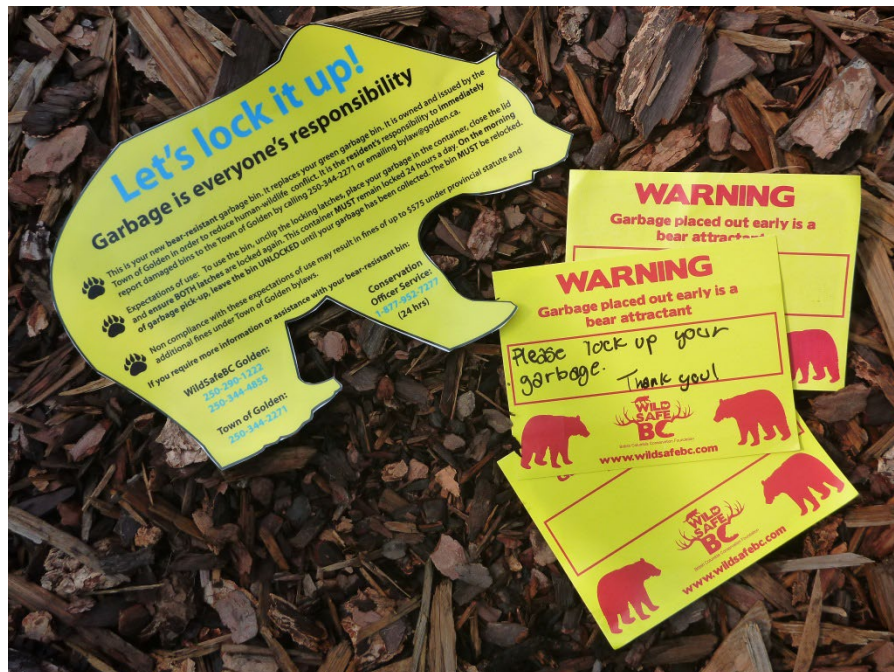 Let's lock it up!
Garbage is everyone's responsibility
This is your new bear-resistant garbage bin. It replaces your green garbage bin. It is owned and issued by the
Town of Golden in order to reduce human-wildlife conflict. It is the resident's responsibility to immediately
report damaged bins to the Town of Golden by calling 250-344-2271 or emailing bylaw@golden.ca.
Expectations of use: To use the bin, unclip the locking latches, place your garbage in the container, close the lid
and ensure BOTH latches are locked again. This container MUST remain locked 24 hours a day. On the morning
of garbage pick-up, leave the bin UNLOCKED until your garbage has been collected. The bin MUST be relocked.
Non compliance with these expectations of use may result in fines of up to $575 under provincial statute and
additional fines under Town of Golden bylaws.
If you require more information or assistance with your bear-resistant bin:
WildSafeBC Golden:
250-290-1222
250-344-4855
Town of Golden:
250-344-2271
Conservation
Officer Service:
1-877-952-7277
(24 hrs)
WARNING
Garbage placed out early is a
bear attractant
WARNING
Garbage placed out early is a
bear attractant
Please lock up your
garbage.
Thank you!
WILD
SAFE
BC
British Columbia Conservation Foundation
www.wildsafebc.com
WILD
SAFE
BC
British Columbia Conservation Foundation
www.wildsafebc.com